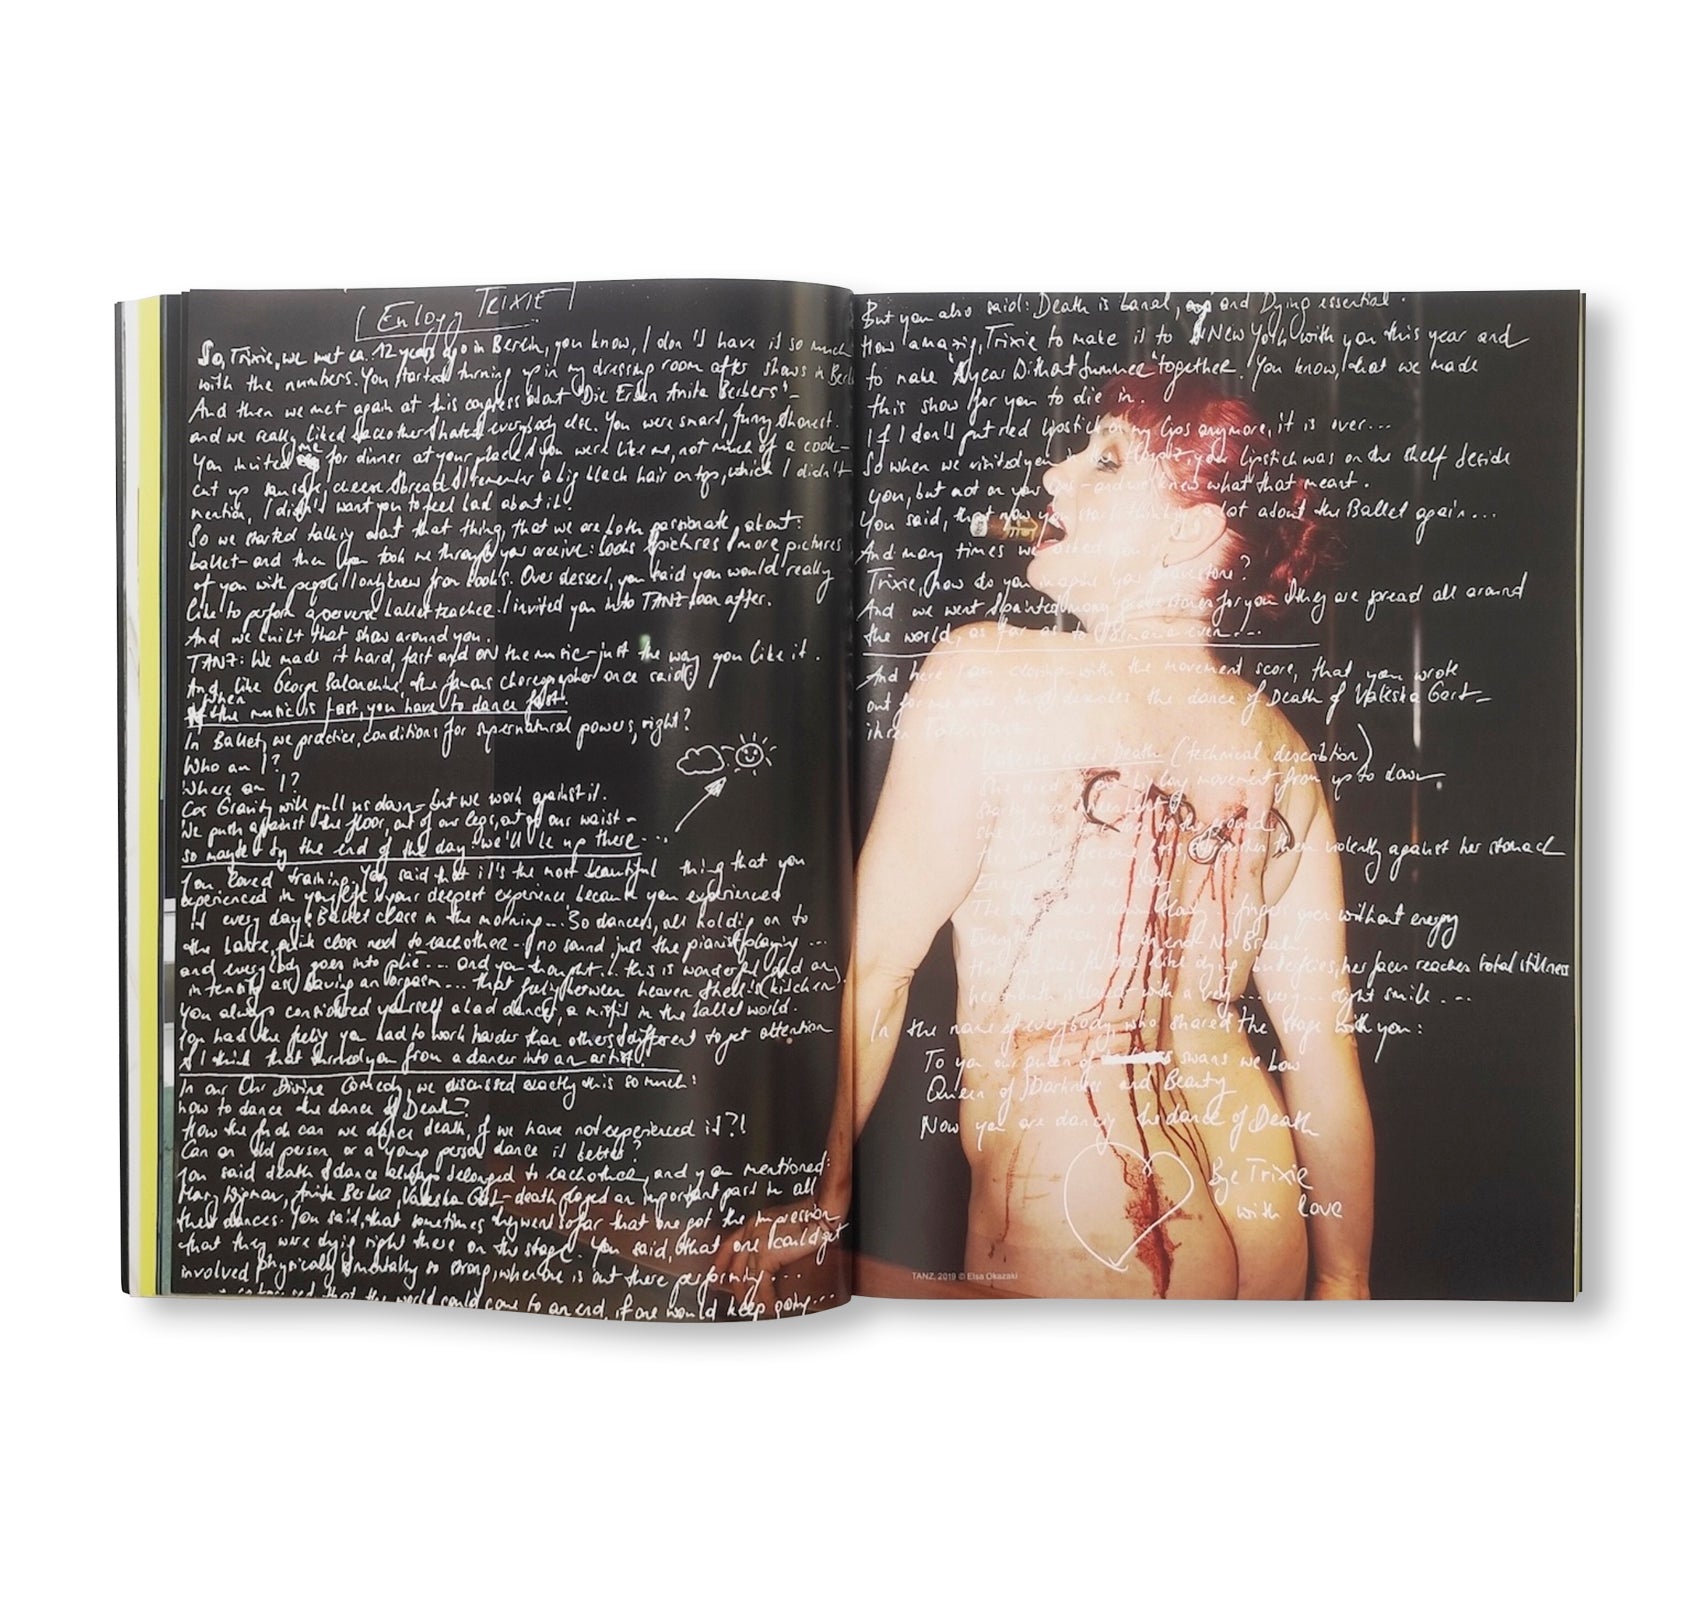 Eulogy TRIXIE
So, Trixie, we met ca. 12 years ago in Berlin, you know, I don't have it so much
with the numbers. You started turning up in my dressing room after shows in
And then we met again at this congress about "Die Erben Anita Berbers" -
and we really liked eachother & hated everybody else. You were smart, funny & honest.
You invited me for dinner at your place & you were like me, not much of a cook -
cut up sausage, cheese & bread & I remember a big black hair on top, which I didn't
mention, I didn't want you to feel bad about it!
So we started talking about that thing, that we are both passionate about:
ballet - and then you took me through your archive: books & pictures & more pictures
of you with people I only knew from books. Over dessert, you said you would really
like to perform a perverse ballet teacher. I invited you into TANZ soon after.
And we built that show around you.
TANZ: We made it hard, fast and on the music - just the way you like it.
And, like George Balanchine, the famous choreographer once said:
When
the music is fast, you have to dance fast.
In Ballet, we practice, conditions for supernatural powers, right?
Who am I?
Where am I?
Cos Gravity will pull us down - but we work against it.
We push against the floor, out of our legs, out of our waist -
so maybe by the end of the day we'll be up there...
You loved training. You said that it's the most beautiful thing that you
experienced in your life & your deepest experience because you experienced
it every day: Ballet class in the morning... So dancers, all holding on to
the barre, quite close next to eachother - no sound just the pianist playing...
and everybody goes into plié... and you thought... this is wonderful and any
intensity as having an orgasm... that feeling between heaven & hell's (kitchen).
You always considered yourself a bad dancer, a misfit in the ballet world.
You had the feeling you had to work harder than others & different to get attention
& I think that turned you from a dancer into an artist!
In our Divine Comedy, we discussed exactly this so much:
how to dance the dance of Death?
How the fuck can we dance death, if we have not experienced it?!
Can an old person, or a young person dance it better?
You said death & dance always belonged to eachother, and you mentioned:
Mary Wigman, Anita Berber, Valeska Gert - death played an important part in all
their dances. You said, that sometimes they went so far that one got the impression,
that they were dying right there on the stage. You said, that one could get
involved physically & mentally so strong, when one is out there performing...
that the world could come to an end, if one would keep going...
But you also said: Death is banal, and Dying essential.
How amazing, Trixie to make it to New York with you this year and
to make "A year Without Summer" together. You know, that we made
this show for you to die in.
If I don't put red lipstick on my lips anymore, it is over...
So when we visited you in the Hospiz, your lipstick was on the shelf beside
you, but not on your lips - and we knew what that meant.
You said, that now you start thinking a lot about the Ballet again...
And many times we asked you:
Trixie, how do you imagine your gravestone?
And we went & painted many gravestones for you & they are spread all around
the world, as far as to Tasmania even...
And here I am closing with the movement score, that you wrote
out for me that describes the dance of Death of Valeska Gert -
ihren Totentanz
Valeska Gert: Death (technical description)
movement from up to down
to the ground
violently against her stomach
Energy her body...
fingers without energy
Everything to an end. No Break.
like dying butterflies, her face reaches total stillness
her mouth with a very... very... slight smile...
In the name of everybody, who shared the stage with you:
To you our queen of swans we bow
Queen of Darkness and Beauty
Now you are dancing the dance of Death
Bye Trixie
with love
TANZ, 2019 © Elsa Okazaki